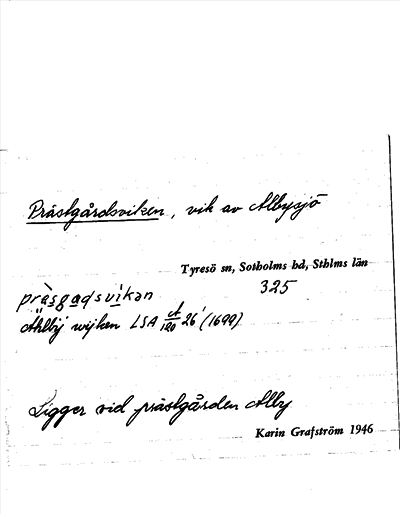 Prästgårdsviken, vik av Albysjö
Tyresö sn, Sotholms hd, Sthlms län
325
präsgadsvikan
Ählbÿ wijken LSA A/120 26¹ (1699)
Ligger vid prästgården Alby
Karin Grafström 1946